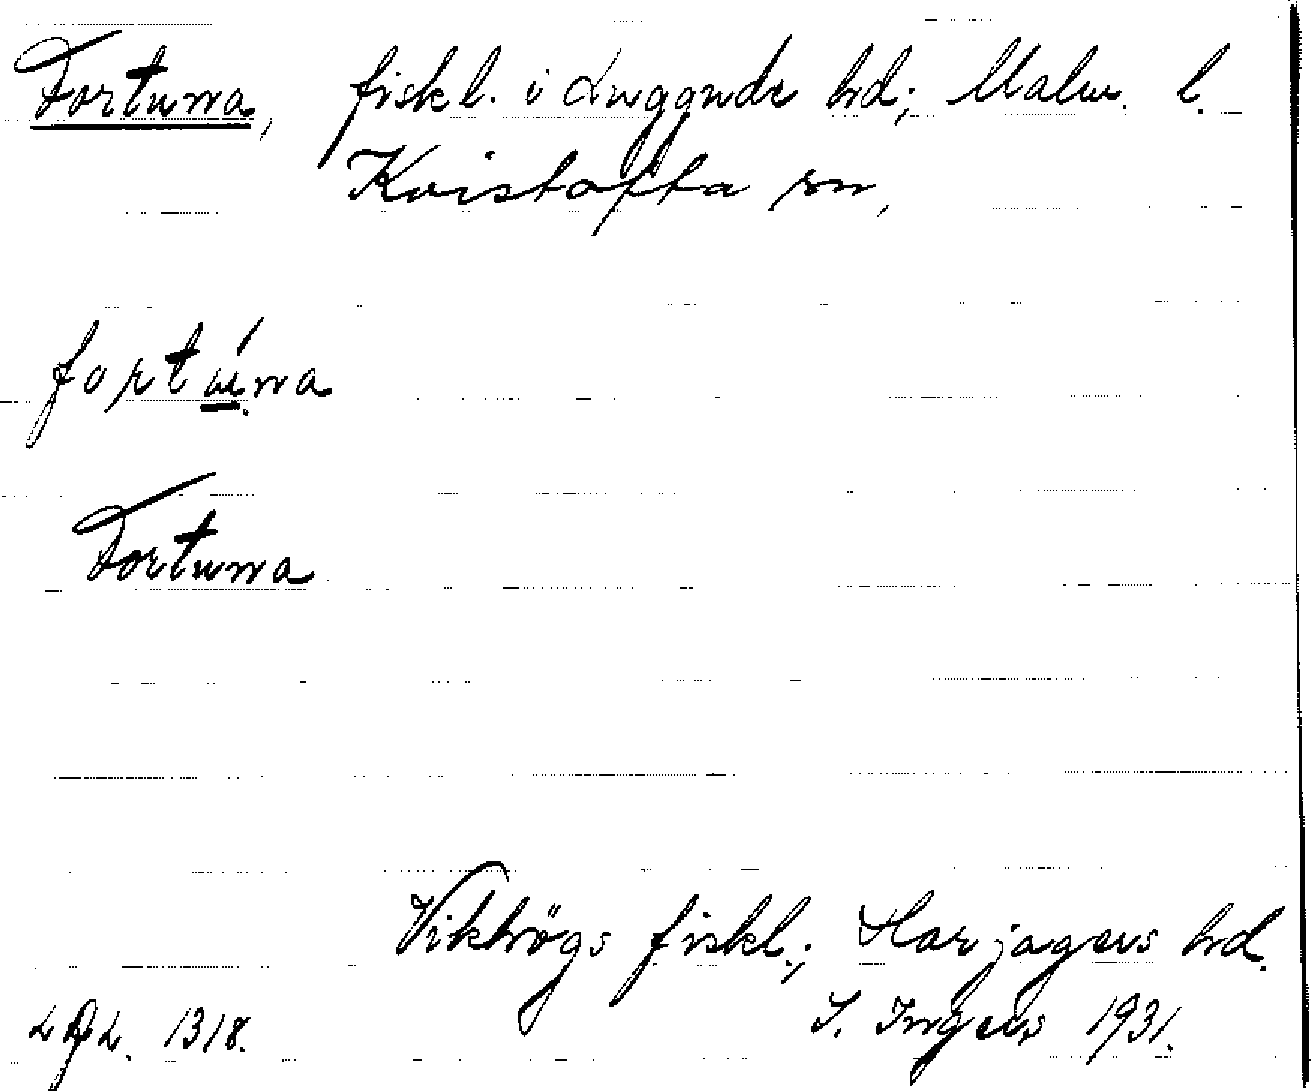 Fortuna, fiskl. i Luggude hd; Malm. l.
Kvistofta sn,
fortúna
Fortuna
Vikhögs fiskl.; Harjagers hd.
I. Ingers 1931.
LAL. 1318.